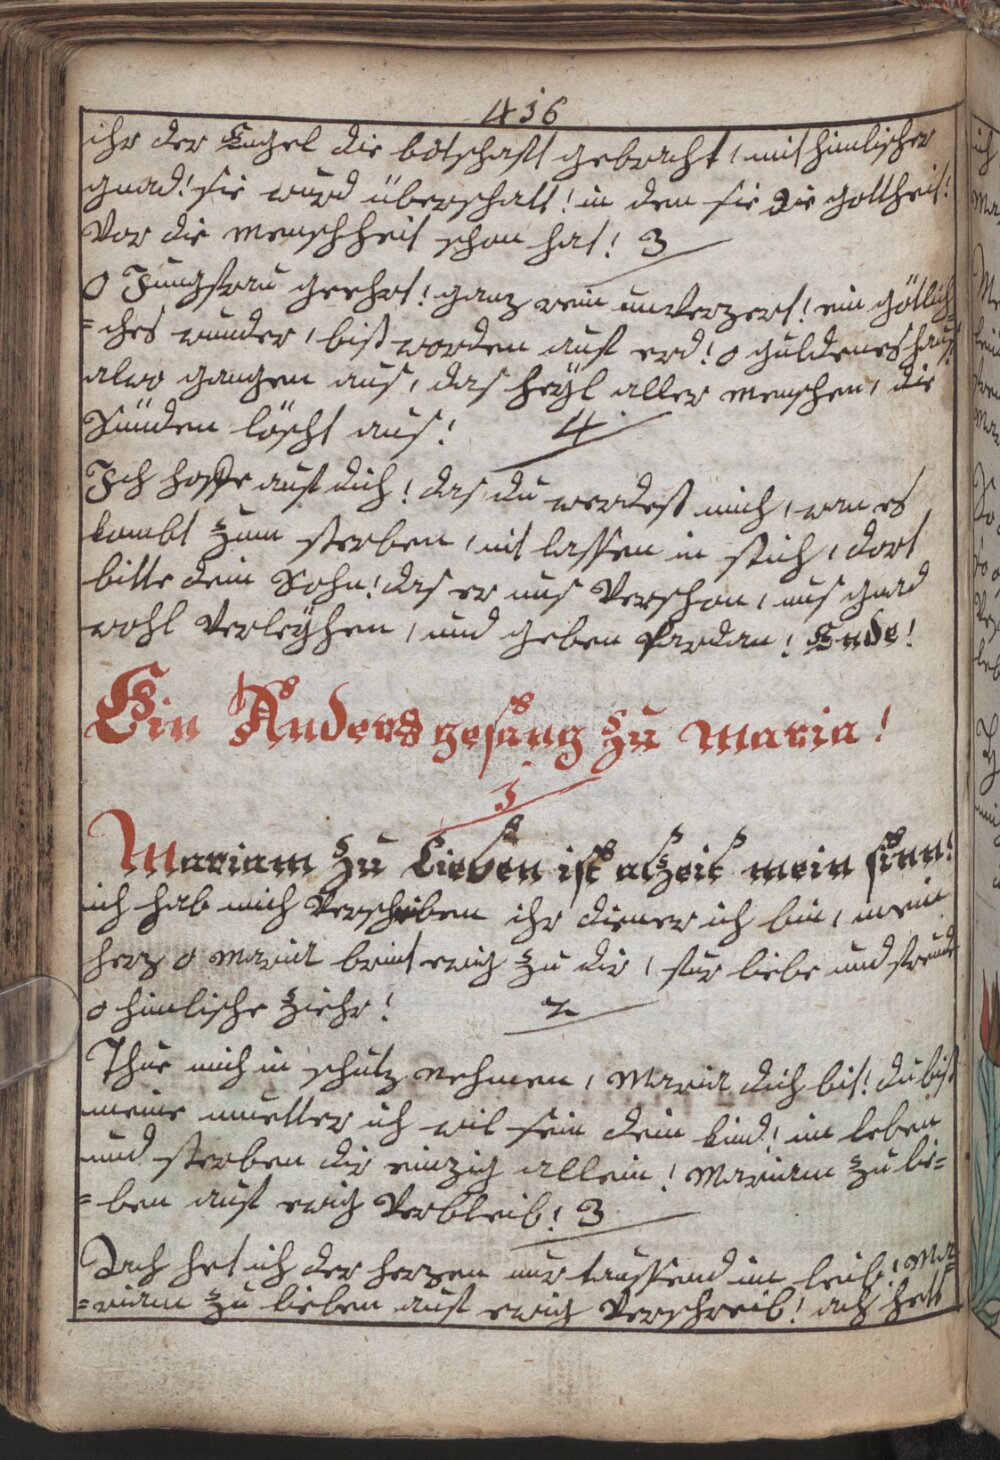 436
ihr der Engel die botschafft gebracht, mit himlischer
gnad! sie wurd überschatt! in dem sie die gottheit!
Vor die menschheit schon hat! 3
O Jungfrau geehrt! ganz rein unverzert! ein götlich=
=ches wunder, bist worden auf erd! o guldenes haus!
alwo gangen aus, das heÿl aller menschen, die
Sünden löscht aus! 4
Ich hoffe auf dich! das du werdest mich, wan es
kombt zum sterben, nit lassen in stich, dort
bitte dein Sohn! das er uns Verschon, uns gnad
wohl Verleÿhen, und geben Pardon! Ende!
Ein Anders gesang zu Maria!
1
Mariam zu Lieben ist alzeit mein sinn!
ich hab mich Verschriben ihr diener ich bin, mein
herz o Maria brint ewig zu dir, für liebe und freude
o himlische ziehr! 2
Thue mich in schutz nehmen, Maria dich bit! du bist
meine muetter ich wil sein dein kind! im leben
und sterben dir einzig allein! Mariam zu lie=
=ben auf ewig Verbleib! 3
Ach het ich der herzen nur taussend im leib! Ma=
=riam zu lieben auf ewig Verschreib! ach hett